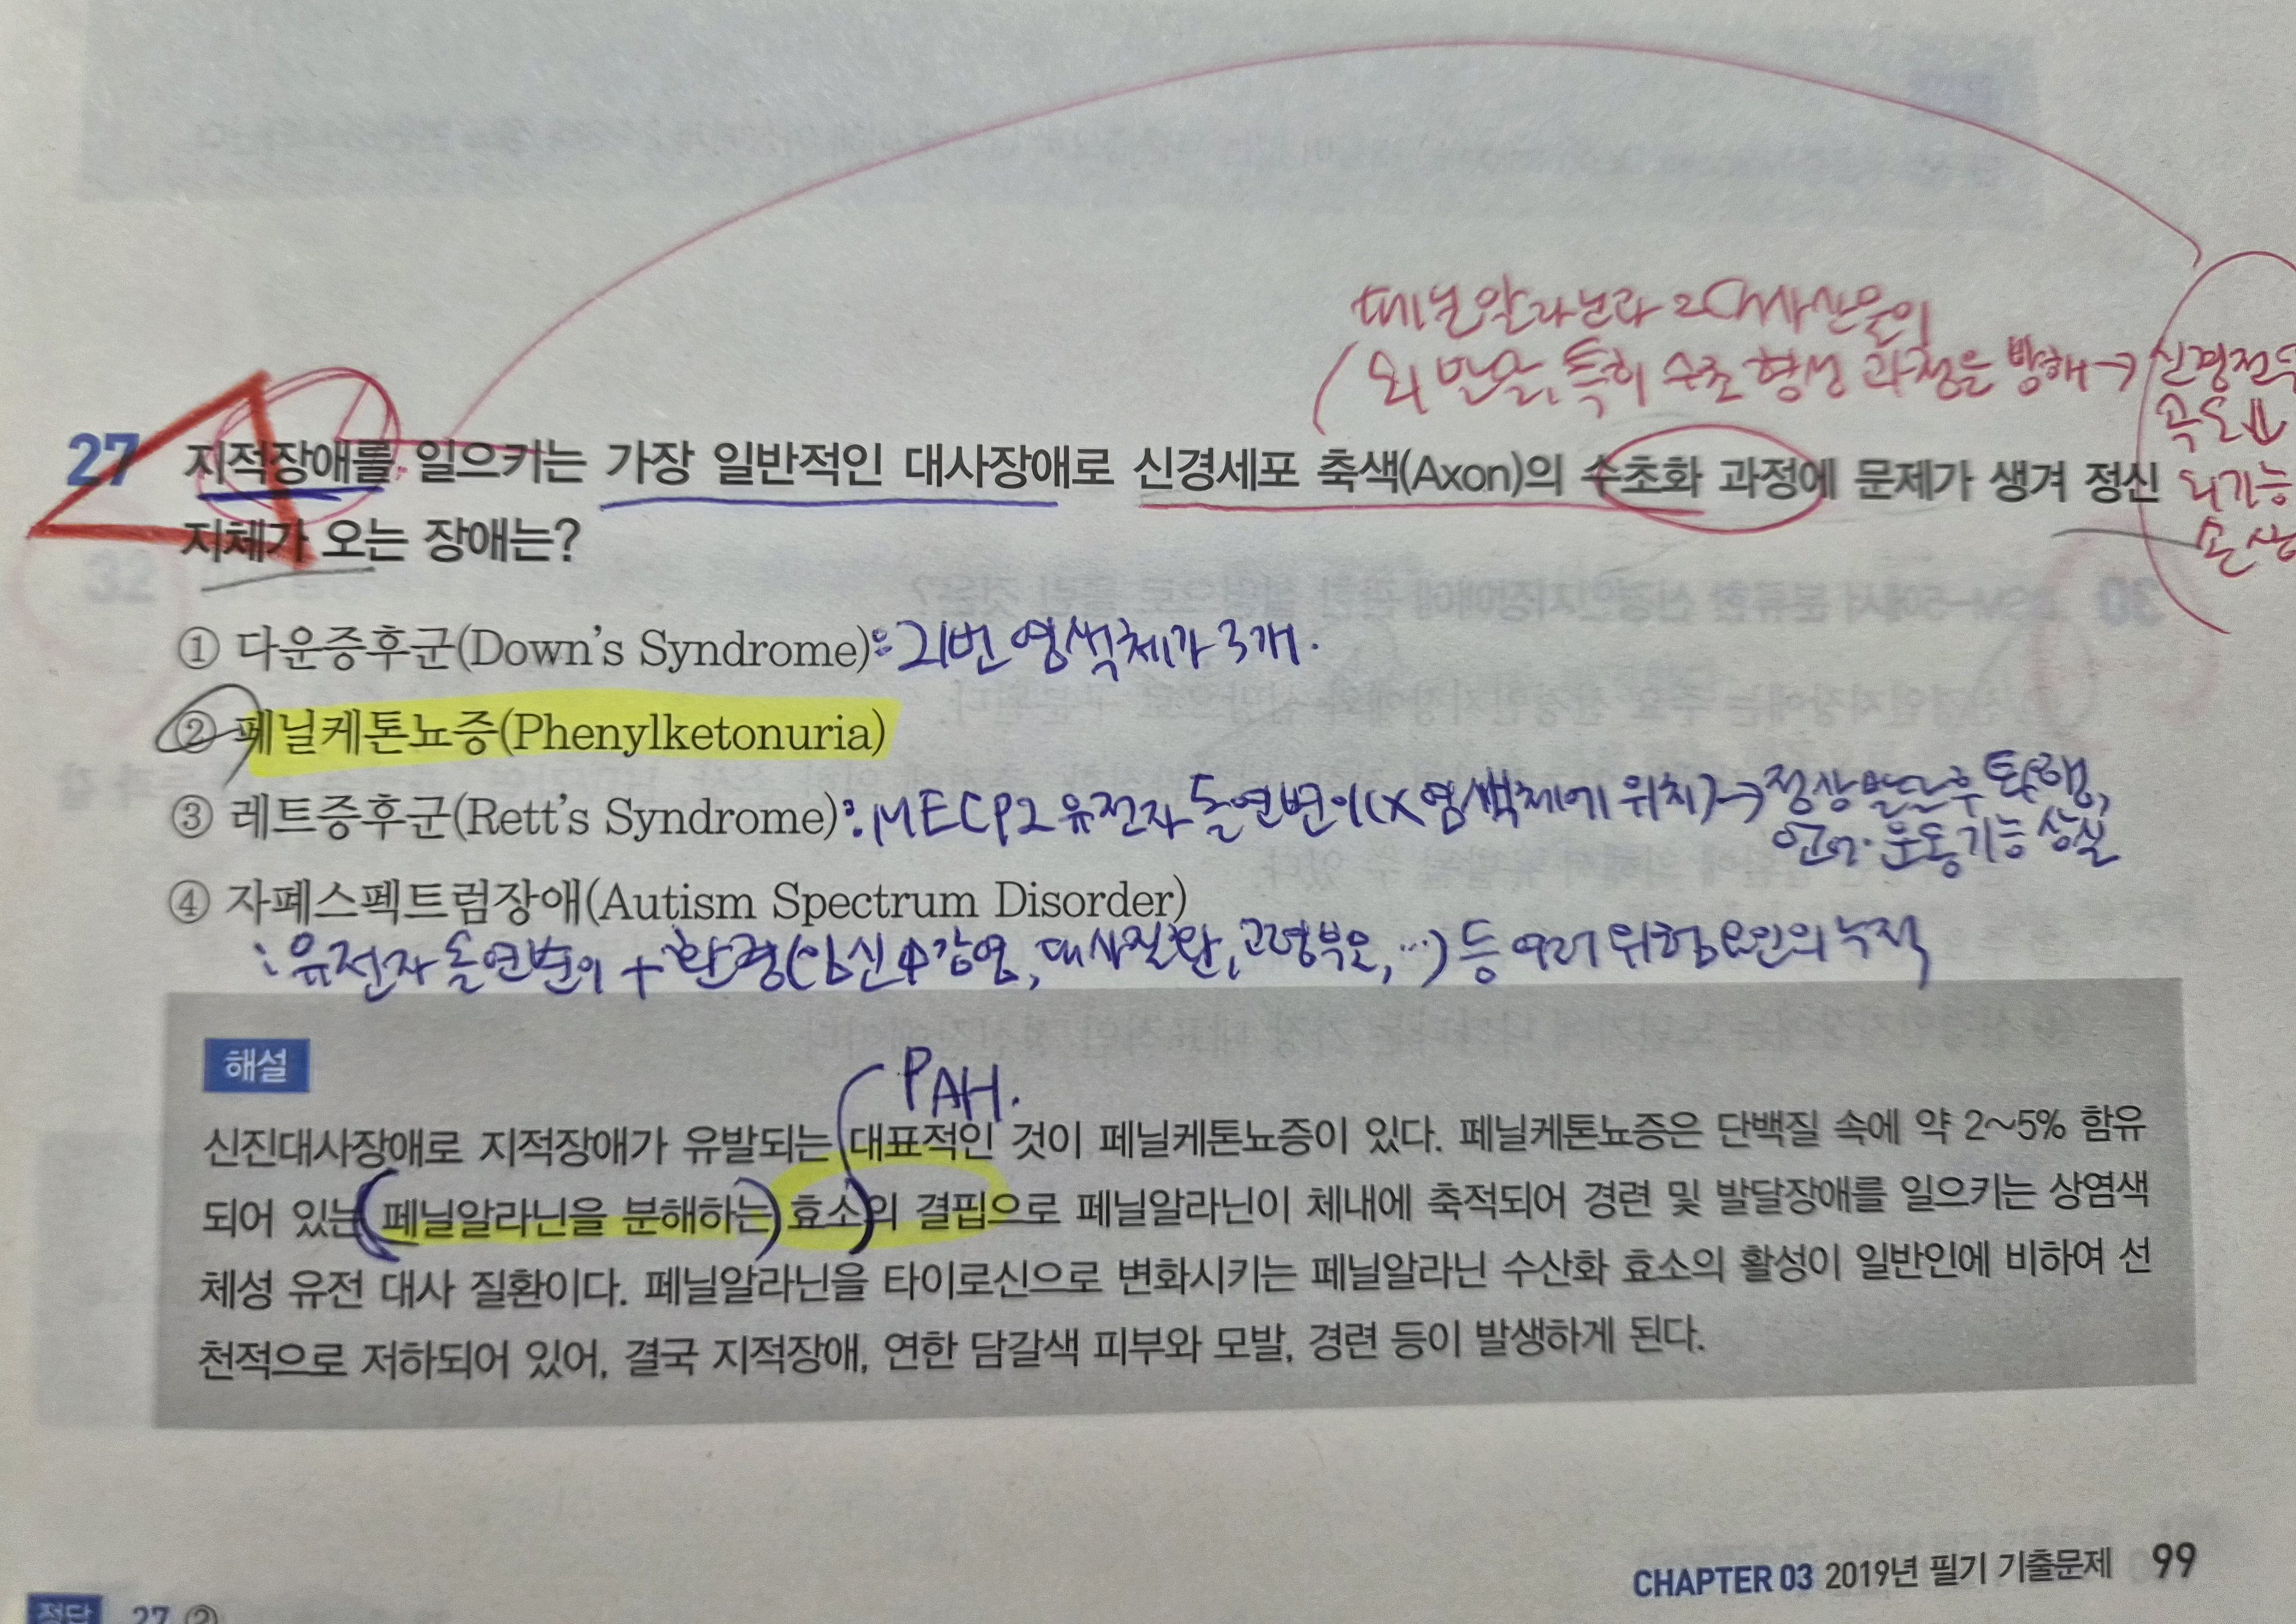 페닐알라닌과 그 대사산물이
뇌 발달, 특히 수초 형성 과정을 방해→ 신경전도
속도⇓
뇌기능
손상
27 지적장애를 일으키는 가장 일반적인 대사장애로 신경세포 축색(Axon)의 수초화 과정에 문제가 생겨 정신
지체가 오는 장애는?
① 다운증후군(Down's Syndrome): 21번 염색체가 3개.
② 페닐케톤뇨증(Phenylketonuria)
③ 레트증후군(Rett's Syndrome): MECP2 유전자 돌연변이(X 염색체에 위치)→정상 발달 후 퇴행,
언어·운동기능 상실
④ 자폐스펙트럼장애(Autism Spectrum Disorder)
: 유전자 돌연변이 + 환경(임신中감염, 대사질환, 고령부모, …) 등 여러 위험요인의 누적
해설
PAH.
신진대사장애로 지적장애가 유발되는 대표적인 것이 페닐케톤뇨증이 있다. 페닐케톤뇨증은 단백질 속에 약 2~5% 함유
되어 있는 (페닐알라닌을 분해하는) 효소)의 결핍으로 페닐알라닌이 체내에 축적되어 경련 및 발달장애를 일으키는 상염색
체성 유전 대사 질환이다. 페닐알라닌을 타이로신으로 변화시키는 페닐알라닌 수산화 효소의 활성이 일반인에 비하여 선
천적으로 저하되어 있어, 결국 지적장애, 연한 담갈색 피부와 모발, 경련 등이 발생하게 된다.
CHAPTER 03 2019년 필기 기출문제 99
정답 27 ②